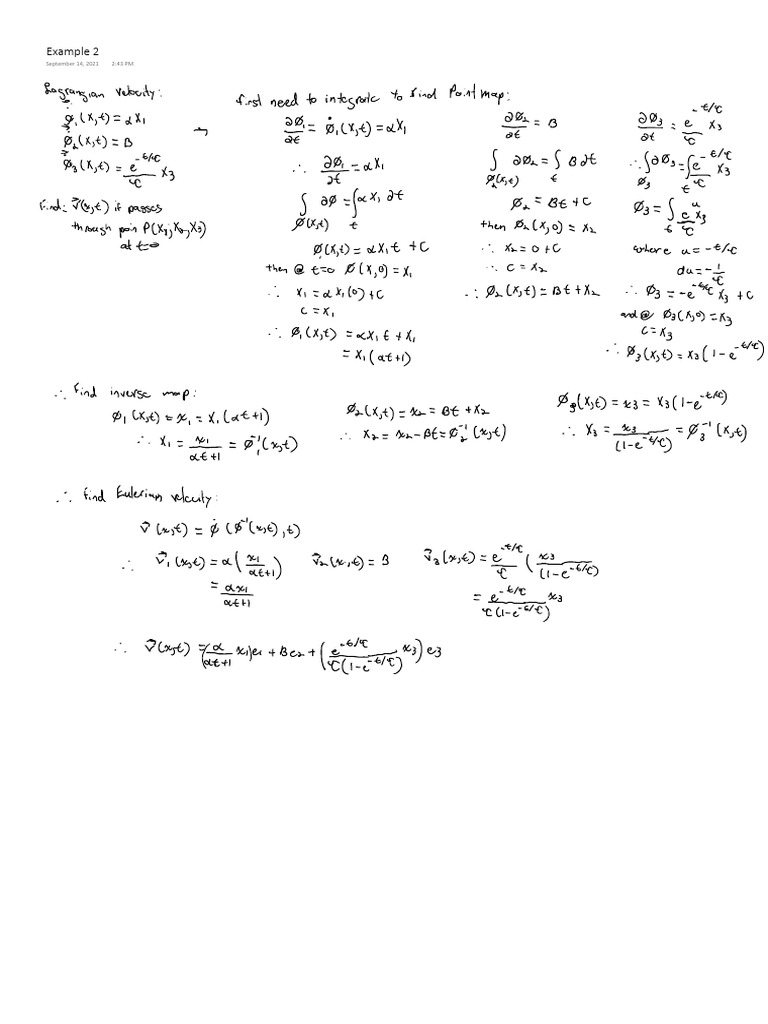 Example 2
September 14, 2021 2:41 PM
Lagrangian velocity:
φ̇₁(X,t) = αX₁
φ̇₂(X,t) = B
φ̇₃(X,t) = e^(-t/τ)/τ X₃
Find: v⃗(x,t) if passes
through poin P(X₁,X₂,X₃)
at t=0
first need to integrate to find Point map:
∂φ₁/∂t = φ̇₁(X,t) = αX₁
∴ ∂φ₁/∂t = αX₁
∫_φ(X,t) ∂φ = ∫_t αX₁ ∂t
φ(X,t) = αX₁t + C
then @ t=0 φ(X,0) = X₁
∴ X₁ = αX₁(0) + C
C = X₁
∴ φ₁(X,t) = αX₁t + X₁
= X₁(αt+1)
∂φ₂/∂t = B
∫_φ₂(X,t) ∂φ₂ = ∫_t B ∂t
φ₂ = Bt + C
then φ₂(X,0) = X₂
∴ X₂ = 0 + C
∴ C = X₂
∴ φ₂(X,t) = Bt + X₂
∂φ₃/∂t = e^(-t/τ)/τ X₃
∴ ∫_φ₃ ∂φ₃ = ∫_t e^(-t/τ)/τ X₃
φ₃ = ∫_t e^u/τ X₃
where u = -t/τ
du = -1/τ
∴ φ₃ = -e^(-t/τ) X₃ + C
and @ φ₃(X,0) = X₃
C = X₃
∴ φ₃(X,t) = X₃(1-e^(-t/τ))
∴ Find inverse map:
φ₁(X,t) = x₁ = X₁(αt+1)
∴ X₁ = x₁/(αt+1) = φ₁⁻¹(x,t)
φ₂(X,t) = x₂ = Bt + X₂
∴ X₂ = x₂ - Bt = φ₂⁻¹(x,t)
φ₃(X,t) = x₃ = X₃(1-e^(-t/τ))
∴ X₃ = x₃/(1-e^(-t/τ)) = φ₃⁻¹(x,t)
∴ Find Eulerian velocity:
v⃗(x,t) = φ̇(φ⁻¹(x,t),t)
∴ v⃗₁(x,t) = α(x₁/(αt+1))
= αx₁/(αt+1)
v⃗₂(x,t) = B
v⃗₃(x,t) = e^(-t/τ)/τ (x₃/(1-e^(-t/τ))
= e^(-t/τ)/(τ(1-e^(-t/τ))) x₃
∴ v⃗(x,t) = (α/(αt+1) x₁)e₁ + Be₂ + (e^(-t/τ)/(τ(1-e^(-t/τ))) x₃)e₃